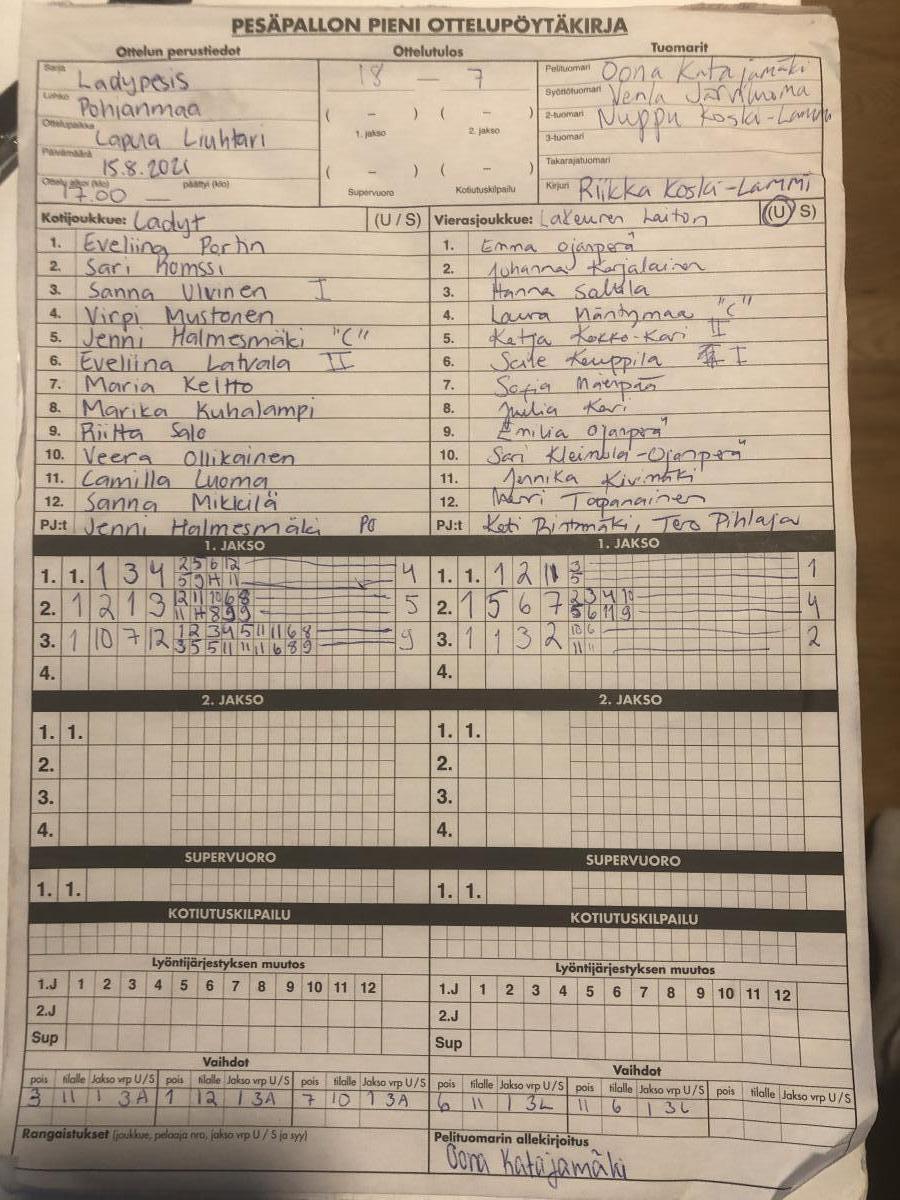 PESÄPALLON PIENI OTTELUPÖYTÄKIRJA
Ottelun perustiedot
Sarja Ladypesis
Lohko Pohjanmaa
Ottelupaikka Lapua Liuhtari
Päivämäärä 15.8.2021
Ottelu alkoi (klo) 17.00 päättyi (klo) —
Ottelutulos
18 – 7
( – ) ( – )
1. jakso 2. jakso
( – ) ( – )
Supervuoro Kotiutuskilpailu
Tuomarit
Pelituomari Oona Katajamäki
Syöttötuomari Venla Järvinoma
2-tuomari Nuppu Koski-Lammi
3-tuomari
Takarajatuomari
Kirjuri Riikka Koski-Lammi
Kotijoukkue: Ladyt (U / S)
1. Eveliina
2. Sari Romssi
3. Sanna Ulvinen I
4. Virpi Mustonen
5. Jenni Halmesmäki "C"
6. Eveliina Latvala II
7. Maria Keltto
8. Marika Kuhalampi
9. Riitta Salo
10. Veera Ollikainen
11. Camilla Luoma
12. Sanna Mikkilä
PJ:t Jenni Halmesmäki
Vierasjoukkue: Lakeuren Laiton (U / S)
1. Emma Ojanperä
2. Juhanna Karjalainen
3. Hanna Saltala
4. Laura Mäntymaa "C"
5. Katja Kokko-Kari II
6. Saile Kauppila I
7. Sofia Mäenpää
8. Julia Kari
9. Emilia Ojanperä
10. Sari Kleimola-Ojanperä
11. Jennika Kivimäki
12. Toopanainen
PJ:t Kati Tero Pihlaja
1. JAKSO
1. 1. 1 3 4 2 5 6 12 4
5 9 4 11
2. 1 2 1 3 12 11 10 6 8 5
11 4 8 9 9
3. 1 10 7 12 1 2 3 4 5 11 11 6 8 9
3 5 5 11 11 11 6 8 9
4.
1. JAKSO
1. 1. 1 2 11 3 1
5
2. 1 5 6 7 2 3 4 10 4
5 6 11 9
3. 1 1 3 2 10 6 2
11 11
4.
2. JAKSO
1. 1.
2.
3.
4.
2. JAKSO
1. 1.
2.
3.
4.
SUPERVUORO
1. 1.
SUPERVUORO
1. 1.
KOTIUTUSKILPAILU
KOTIUTUSKILPAILU
Lyöntijärjestyksen muutos
1.J 1 2 3 4 5 6 7 8 9 10 11 12
2.J
Sup
Lyöntijärjestyksen muutos
1.J 1 2 3 4 5 6 7 8 9 10 11 12
2.J
Sup
Vaihdot
pois tilalle Jakso vrp U/S pois tilalle Jakso vrp U/S pois tilalle Jakso vrp U/S
3 11 1 3A 1 12 1 3A 7 10 1 3A
Vaihdot
pois tilalle Jakso vrp U/S pois tilalle Jakso vrp U/S pois tilalle Jakso vrp U/S
6 11 1 3L 11 6 1 3L
Rangaistukset (joukkue, pelaaja nro, jakso vrp U / S ja syy)
Pelituomarin allekirjoitus
Oona Katajamäki